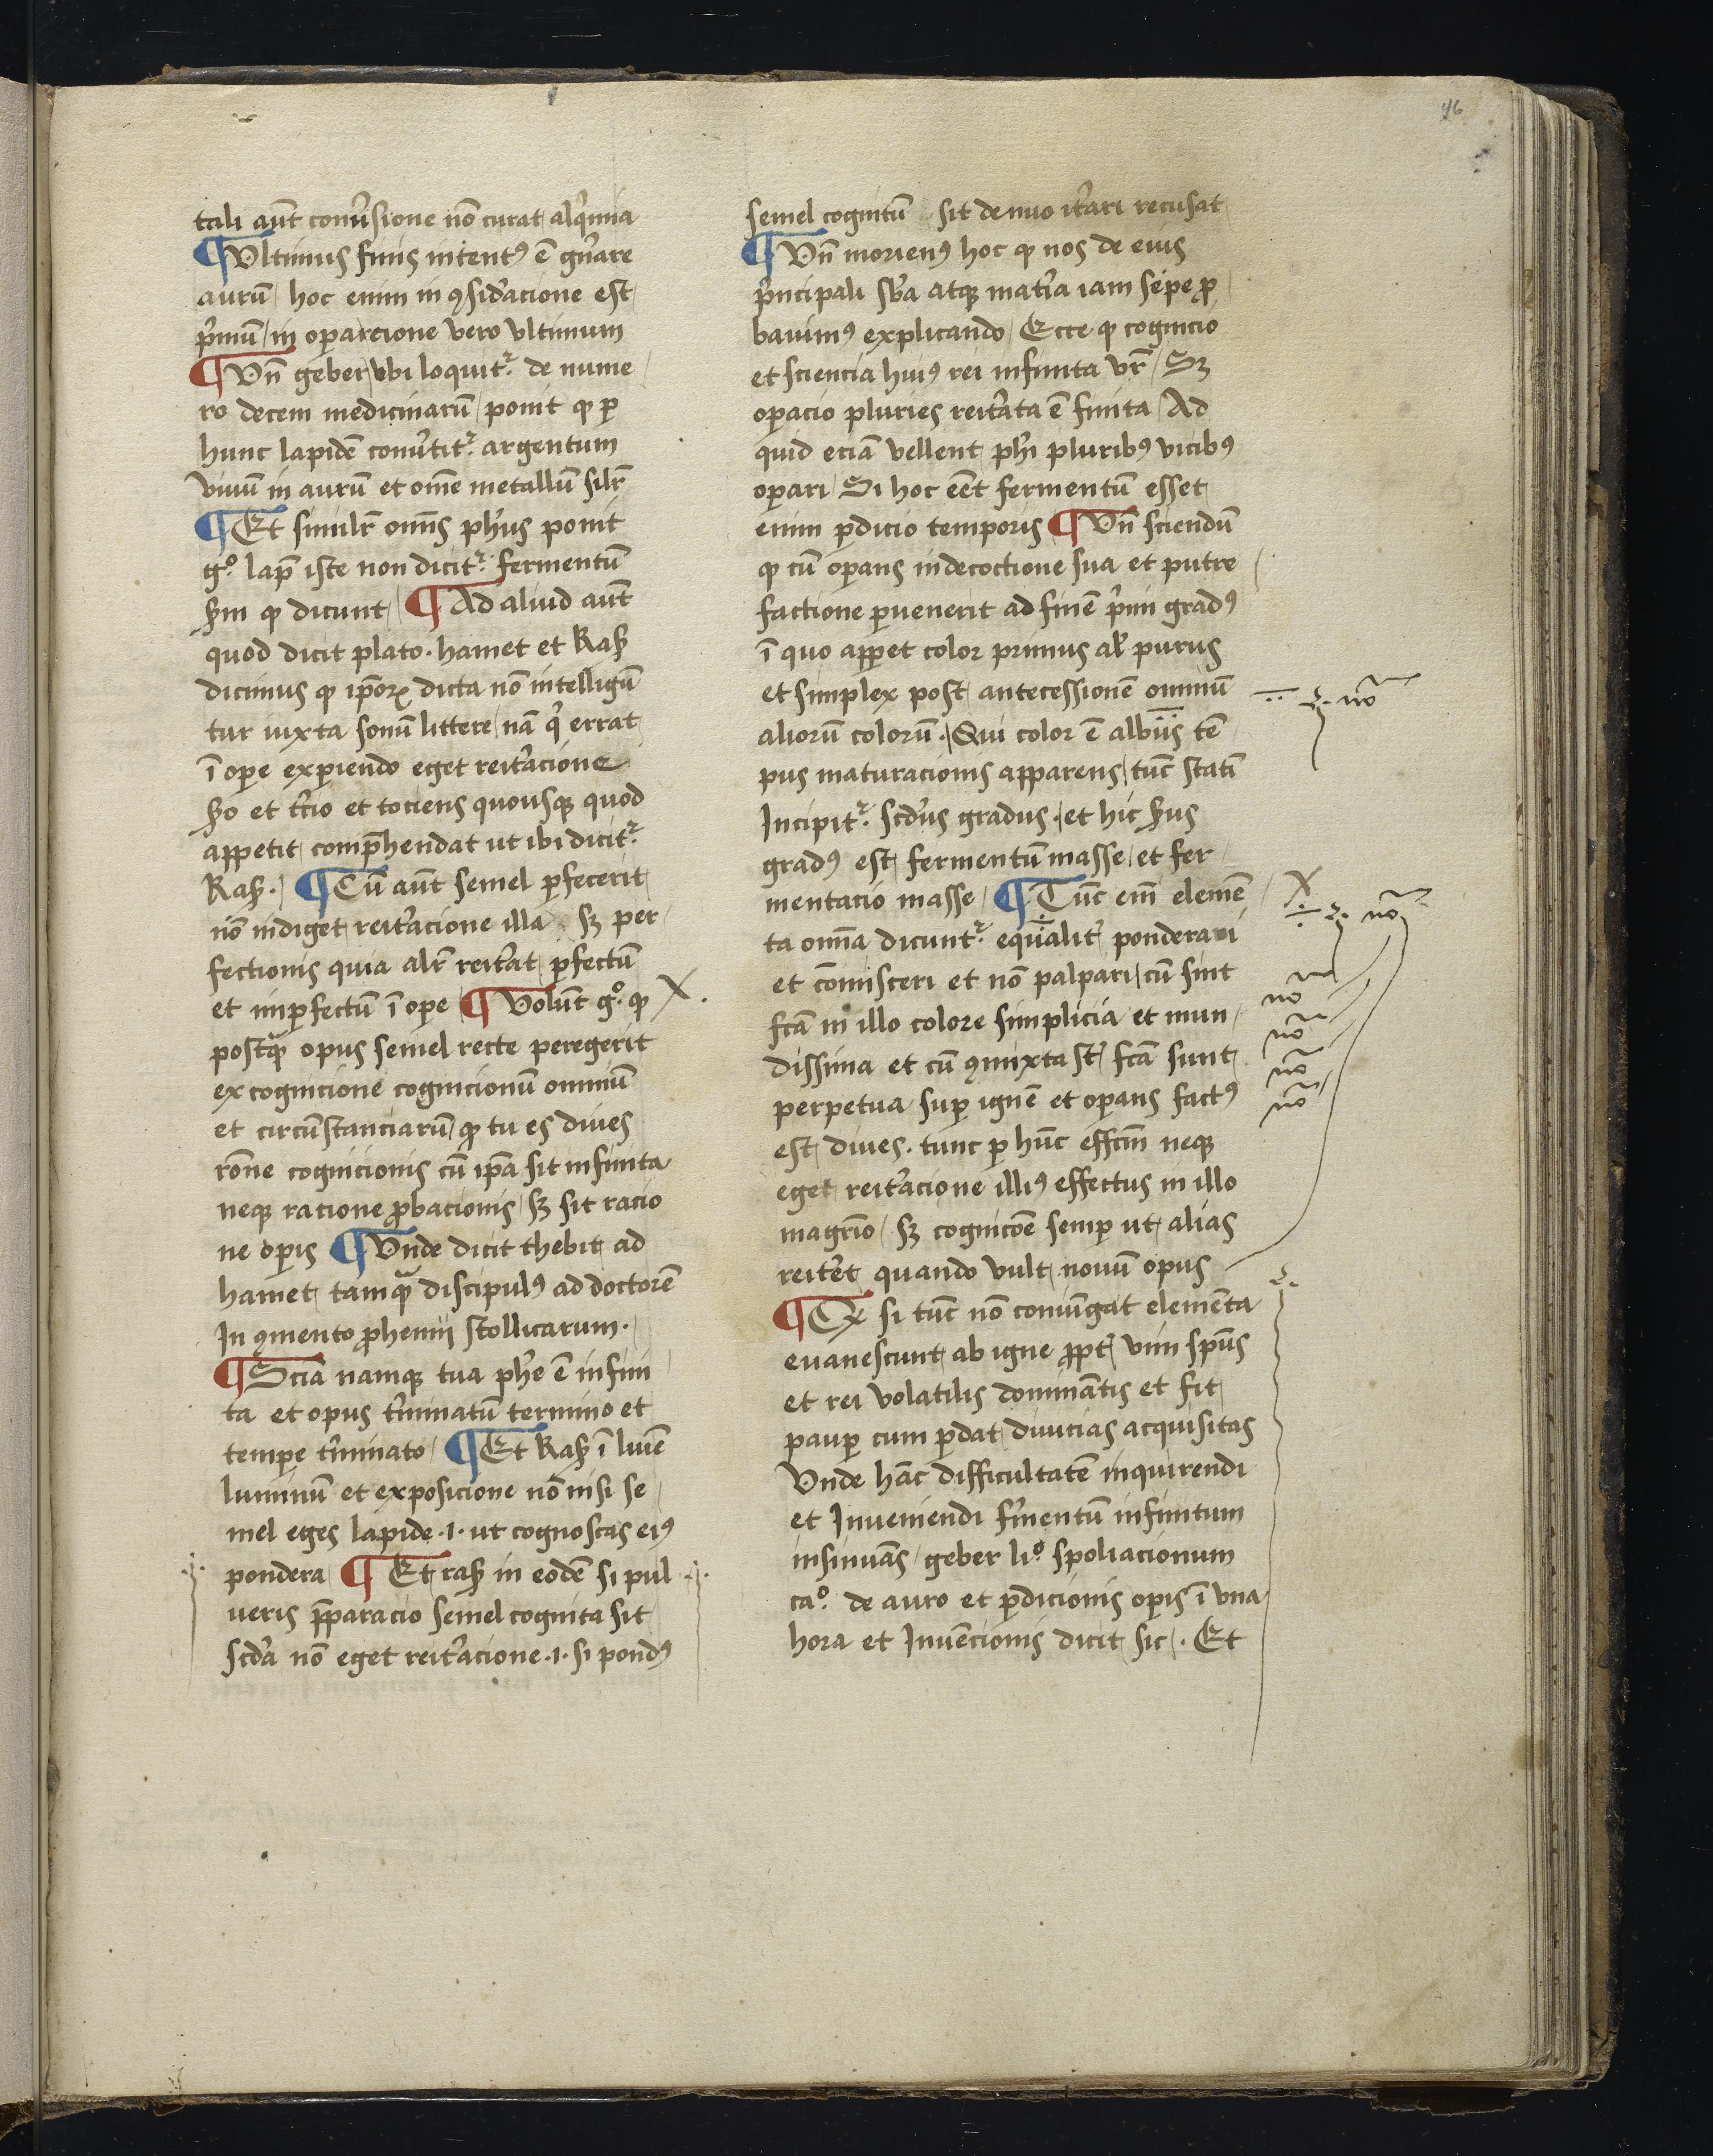 96
tali aūt conuersione nō curat alq'mia
¶ Vltimus finis intentꝰ ē gn̄are
aurū / hoc enim in ꝯsid'acione est
p'mū / in oparcione vero vltimum
¶ Vn̄ geber / vbi loquitr̉ de nume
ro decem medicinarū / ponit ꝙ ꝑ
hunc lapidē conu'titr̉ argentum
viuū in aurū et om̄e metallū silr̄
¶ Et similr̄ om̄is ph'us ponit
g°. lap̄ iste non dicitr̉ fermentū
ẜm ꝙ dicunt / ¶ Ad aliud aūt
quod dicit plato. hamet et Raẜ
dicimus ꝙ ip̄oꝝ dicta nō intelligū
tur iuxta sonū littere / nā q' errat
ī oꝑe exꝑiendo eget reit'acione
ẜo et t'cio et tociens quousqꝫ quod
appetit comp̄hendat ut ibi dicitr̉
Raẜ. / ¶ Cū aūt semel ꝑfecerit
nō indiget reit'acione illa sꝫ per
fectionis quia alr̄ reit'at ꝑfectū
et imꝑfectū ī oꝑe ¶ Volūt g°. ꝙ
postq̄ opus semel recte peregerit
ex cognicione cognicionū omniū
et circūstanciarū / ꝙ tu es diues
rōne cognicionis cū ip̄a sit infinita
neqꝫ ratione ꝓbacionis / sꝫ sit racio
ne oꝑis ¶ Vnde dicit thebit ad
hamet tamq̄ discipulꝰ ad doctorē
In ꝯmento ꝓhemij stollicarum.
¶ Scīa namqꝫ tua ph'e ē infini
ta et opus t'minatū termino et
temꝑe t'minato / ¶ Et Raẜ ī lumē
luminū et exposicione nō nisi se
mel eges lapide .i. ut cognoscas eiꝰ
pondera ¶ Et raẜ in eodē si pul
ueris p̄paracio semel cognita sit
scd'a nō eget reit'acione .i. si pondꝰ
semel cognitū sit de nuo it'ari recusat
¶ Vn̄ morienꝰ hoc ꝙ nos de eius
p'ncipali sb'a atqꝫ mat'ia iam sepe ꝓ
bauimꝰ explicando / Ecce ꝙ cognicio
et sciencia huiꝰ rei infinita vr̄ / Sꝫ
oꝑacio pluries reit'ata ē finita / Ad
quid eciā vellent ph'i pluribꝰ vicibꝰ
oꝑari / Si hoc eēt fermentū esset
enim ꝑdicio temporis ¶ Vn̄ sciendū
ꝙ cū oꝑans in decoctione sua et putre
factione ꝑuenerit ad finē p'mi gradꝰ
ī quo apꝑet color primus alr̄ purus
et simplex post antecessionē omniū
aliorū colorū. / Qui color ē albus tē
pus maturacionis apparens / tūc statī
Incipitr̉ scd'us gradus. / et hic ẜus
gradꝰ est fermentū masse / et fer
mentacio masse / ¶ Tūc em̄ elemē
ta omīa dicuntr̉ equalit' ponderari
et cōmisceri et nō palpari / cū sint
fc̄a in illo colore simplicia et mun
dissima et cū ꝯmixta st̄ fc̄a sunt
perpetua suꝑ ignē et oꝑans factꝰ
est diues. tunc ꝑ hūc effcm̄ neqꝫ
eget reit'acione illiꝰ effectus in illo
magr̄io / sꝫ cognicōe semꝑ ut alias
reit'et quando vult nouū opus
¶ Et si tūc nō coniūgat elemēta
euanescunt ab igne ꝓpt' vim sp̄us
et rei volatilis dominātis et fit
pauꝑ cum ꝑdat diuicias acquisitas
Vnde hāc difficultatē inquirendi
et Inueniendi f'mentū infinitum
insinuās / geber li°. spoliacionum
ca°. de auro et ꝑdicionis oꝑis ī vna
hora et Inuēcionis dicit sic /. Et
no
no
no
no
no
no